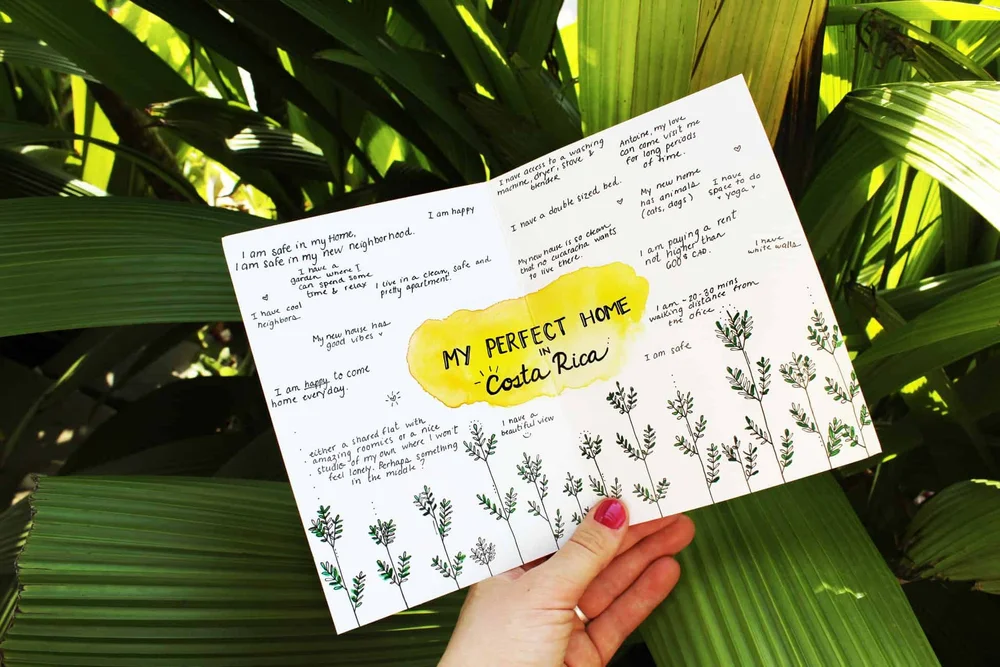 I am happy
I am safe in my Home,
I am safe in my new neighborhood.
I have a
garden where I
can spend some
time & relax
I live in a clean, safe and
pretty apartment.
I have cool
neighbors
My new house has
good vibes
I am happy to come
home everyday.
either a shared flat with
amazing roomies or a nice
studio of my own where I won't
feel lonely. Perhaps something
in the middle?
I have access to a washing
machine, dryer, stove &
blender
Antoine, my love
can come visit me
for long periods
of time.
I have a double sized bed.
My new home
has animals
(cats, dogs)
I have
space to do
yoga
My new house is so clean
that no cucaracha wants
to live there.
I am paying a rent
not higher than
600$ CAD.
I have
white walls
MY PERFECT HOME
IN
Costa Rica
I am ~20-30 mins
walking distance from
the office
I am safe
I have a
beautiful view